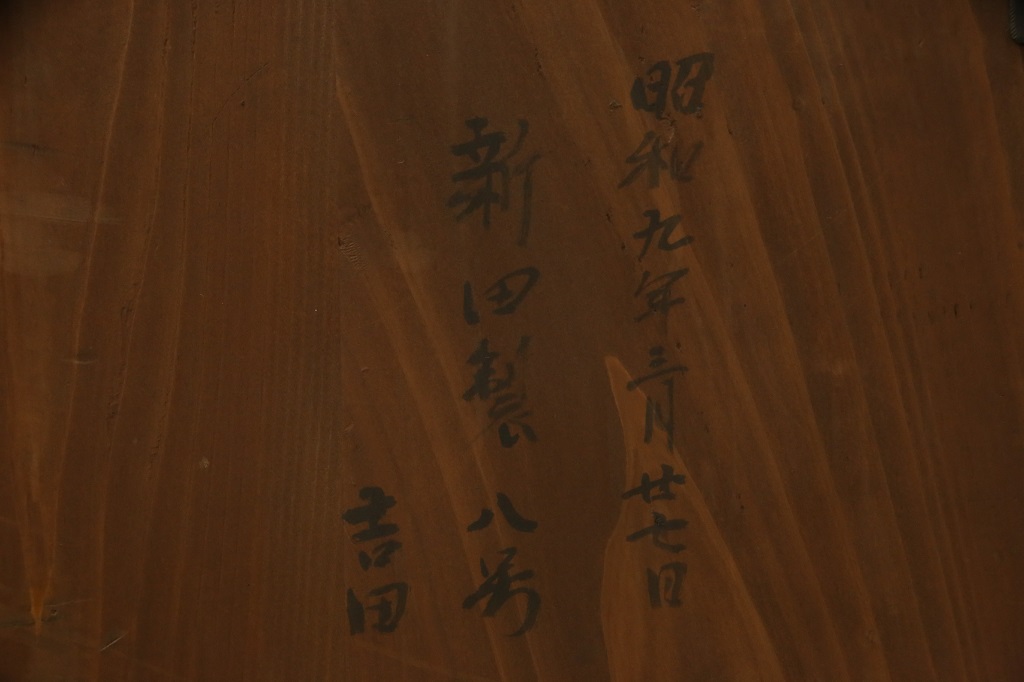 昭和九年三月廿七日
新田製八号
吉田